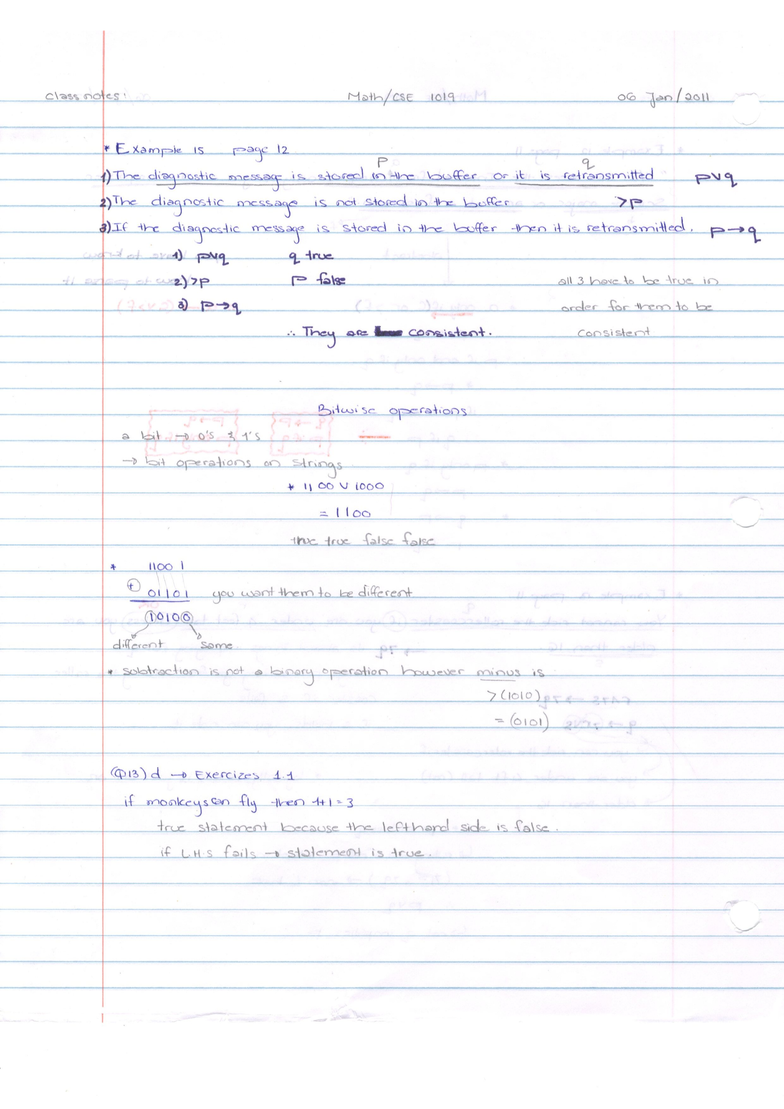 class notes: Math/CSE 1019 06 Jan/2011
* Example 15 page 12
p q
1) The diagnostic message is stored in the buffer or it is retransmitted p∨q
2) The diagnostic message is not stored in the buffer >p
3) If the diagnostic message is stored in the buffer then it is retransmitted. p→q
1) p∨q q true
2) >p p false all 3 have to be true in
3) p→q order for them to be
∴ They are consistent. consistent
Bitwise operations
a bit → 0's & 1's
→ bit operations on strings
* 1100 ∨ 1000
= 1100
true true false false
* 11001
⊕ 01101 you want them to be different
10100
different same
* subtraction is not a binary operation however minus is
>(1010)
= (0101)
(Q13) d → Exercizes 1.1
if monkeys can fly then 1+1=3
true statement because the left hand side is false.
if L.H.S fails → statement is true.